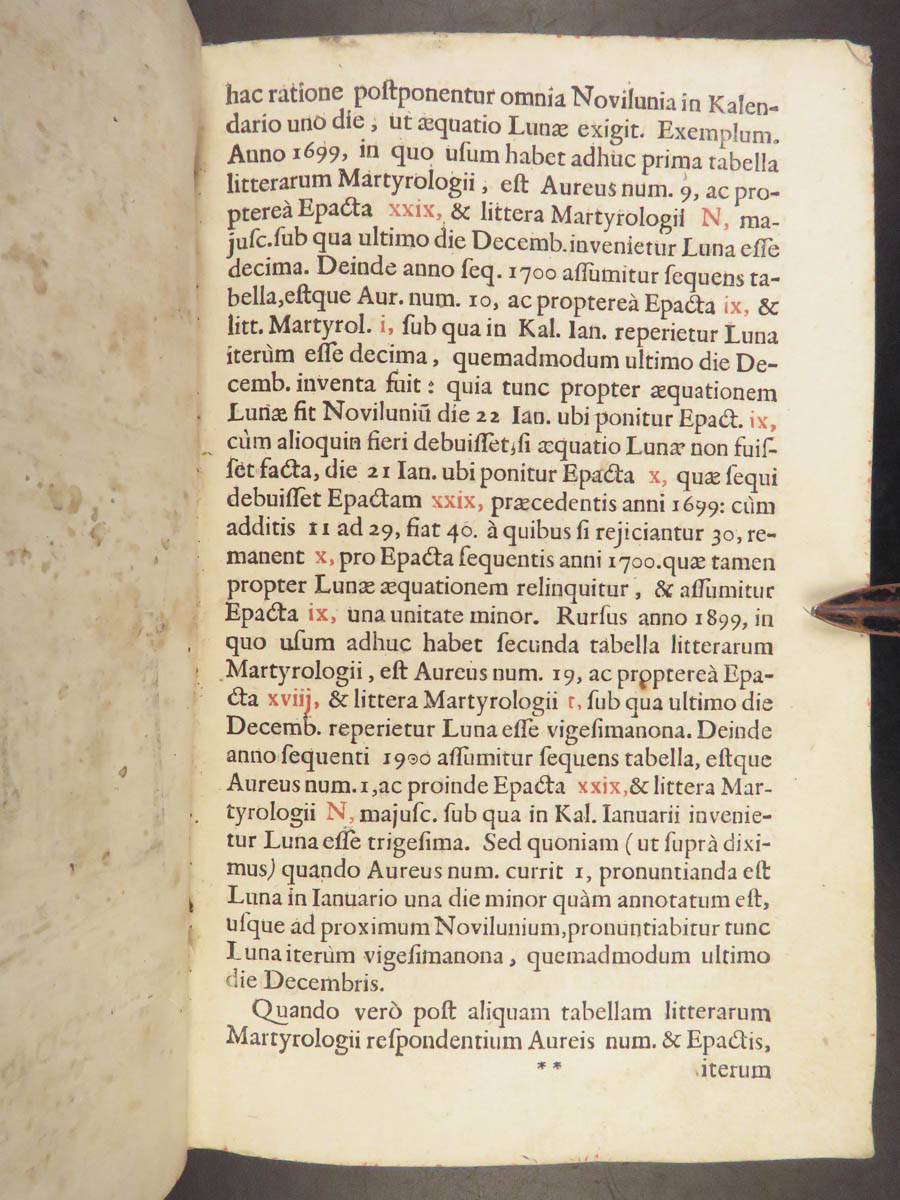 hac ratione poſtponentur omnia Novilunia in Kalen-
dario uno die, ut æquatio Lunæ exigit. Exemplum.
Anno 1699, in quo uſum habet adhuc prima tabella
litterarum Martyrologii, eſt Aureus num. 9, ac pro-
ptereà Epacta xxix, & littera Martyrologii N, ma-
juſc. ſub qua ultimo die Decemb. invenietur Luna eſſe
decima. Deinde anno ſeq. 1700 aſſumitur ſequens ta-
bella, eſtque Aur. num. 10, ac proptereà Epacta ix, &
litt. Martyrol. i, ſub qua in Kal. Ian. reperietur Luna
iterùm eſſe decima, quemadmodum ultimo die De-
cemb. inventa fuit: quia tunc propter æquationem
Lunæ fit Noviluniũ die 22 Ian. ubi ponitur Epact. ix,
cùm alioquin fieri debuiſſet, ſi æquatio Lunæ non fuiſ-
ſet facta, die 21 Ian. ubi ponitur Epacta x, quæ ſequi
debuiſſet Epactam xxix, præcedentis anni 1699: cùm
additis 11 ad 29, fiat 40. à quibus ſi rejiciantur 30, re-
manent x, pro Epacta ſequentis anni 1700. quæ tamen
propter Lunæ æquationem relinquitur, & aſſumitur
Epacta ix, una unitate minor. Rurſus anno 1899, in
quo uſum adhuc habet ſecunda tabella litterarum
Martyrologii, eſt Aureus num. 19, ac proptereà Epa-
cta xviij, & littera Martyrologii t, ſub qua ultimo die
Decemb. reperietur Luna eſſe vigeſimanona. Deinde
anno ſequenti 1900 aſſumitur ſequens tabella, eſtque
Aureus num. 1, ac proinde Epacta xxix, & littera Mar-
tyrologii N, majuſc. ſub qua in Kal. Ianuarii invenie-
tur Luna eſſe trigeſima. Sed quoniam (ut ſuprà dixi-
mus) quando Aureus num. currit 1, pronuntianda eſt
Luna in Ianuario una die minor quàm annotatum eſt,
uſque ad proximum Novilunium, pronuntiabitur tunc
Luna iterùm vigeſimanona, quemadmodum ultimo
die Decembris.
Quando verò poſt aliquam tabellam litterarum
Martyrologii reſpondentium Aureis num. & Epactis,
** iterum